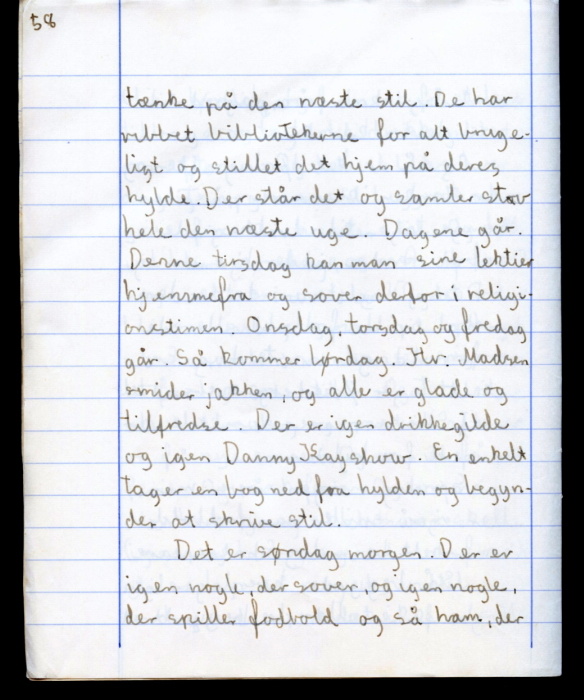 58
tænke på den næste stil. De har
ribbet bibliotekerne for alt bruge-
ligt og stillet det hjem på deres
hylde. Der står det og samler støv
hele den næste uge. Dagene går.
Denne tirsdag kan man sine lektier
hjemmefra og sover derfor i religi-
onstimen. Onsdag, torsdag og fredag
går. Så kommer lørdag. Hr. Madsen
smider jakken, og alle er glade og
tilfredse. Der er igen drikkegilde
og igen Danny Kayshow. En enkelt
tager en bog ned fra hylden og begyn-
der at skrive stil.
Det er søndag morgen. Der er
igen nogle, der sover, og igen nogle,
der spiller fodbold og så ham, der